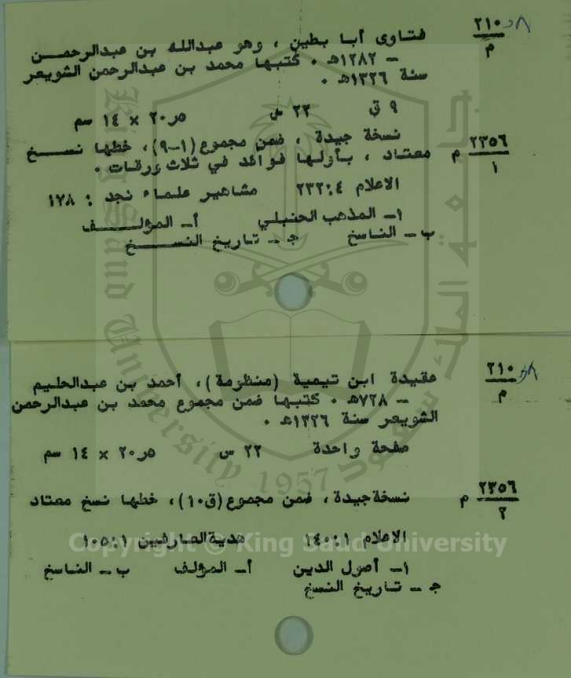 ٢١٠
م
فتاوى أبا بطين ، وهو عبدالله بن عبدالرحمن
- ١٢٨٢هـ . كتبها محمد بن عبدالرحمن الشويعر
سنة ١٣٢٦هـ .
٩ ق ٢٢ س ٢٠٫٥ × ١٤ سم
٢٣٥٦ م
١
نسخة جيدة ، ضمن مجموع (١-٩)، خطها نسخ
معتاد ، بأولها فوائد في ثلاث ورقات .
الاعلام ٢٣٢:٤ مشاهير علماء نجد : ١٧٨
١- المذهب الحنبلي أ- المؤلف
ب - الناسخ جـ - تاريخ النسخ
٢١٠
م
عقيدة ابن تيمية (منظومة)، أحمد بن عبدالحليم
- ٧٢٨هـ . كتبها ضمن مجموع محمد بن عبدالرحمن
الشويعر سنة ١٣٢٦هـ .
صفحة واحدة ٢٢ س ٢٠٫٥ × ١٤ سم
٢٣٥٦ م
٢
نسخة جيدة ، ضمن مجموع (ق١٠)، خطها نسخ معتاد
الاعلام ١٤٠:١ هدية العارفين ١٠٥:١
١- أصول الدين أ- المؤلف ب - الناسخ
جـ - تاريخ النسخ
Copyright © King Saud University
جامعة الملك سعود
King Saud University
1957